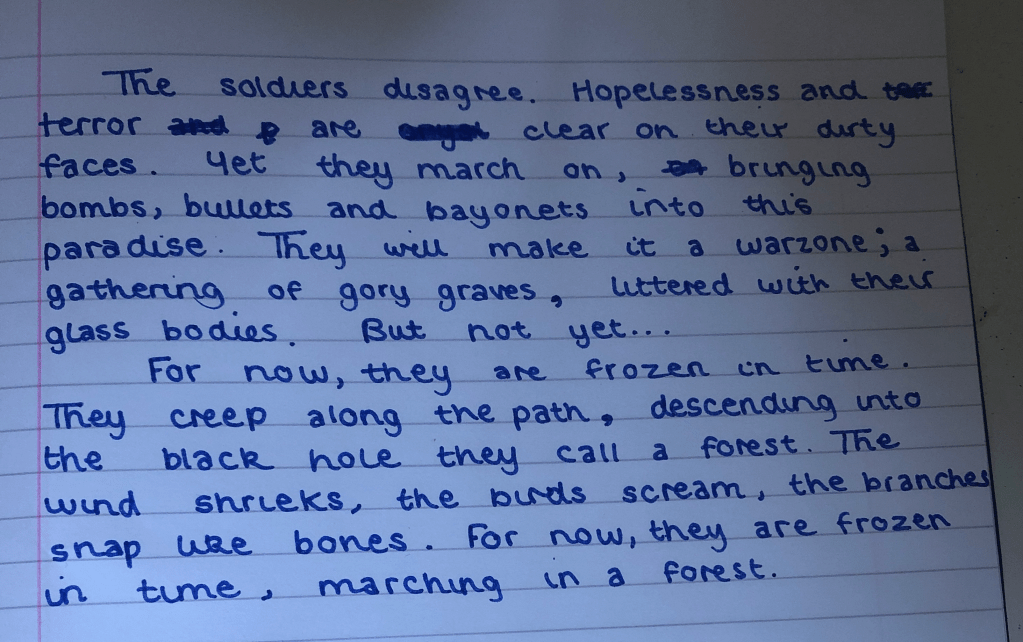 The soldiers disagree. Hopelessness and
terror are clear on their dirty
faces. Yet they march on, bringing
bombs, bullets and bayonets into this
paradise. They will make it a warzone; a
gathering of gory graves, littered with their
glass bodies. But not yet...
For now, they are frozen in time.
They creep along the path, descending into
the black hole they call a forest. The
wind shrieks, the birds scream, the branches
snap like bones. For now, they are frozen
in time, marching in a forest.